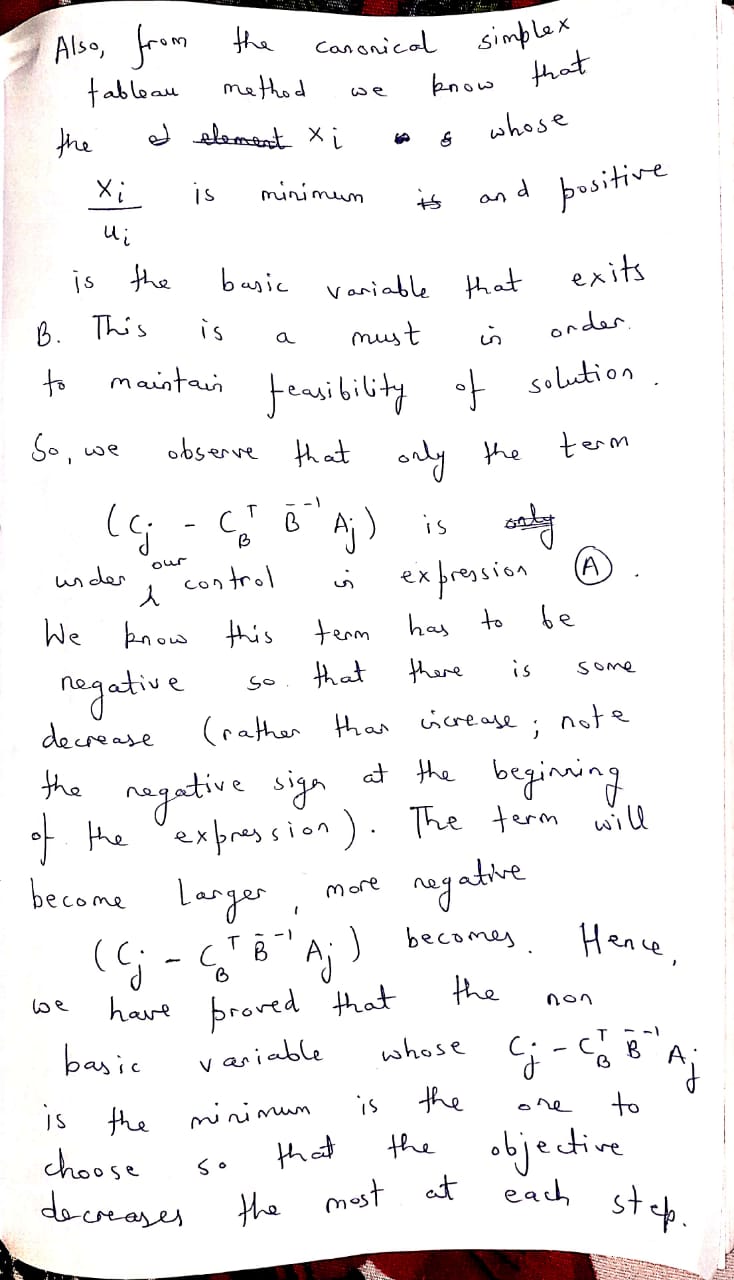 Also, from the canonical simplex
tableau method we know that
the element xi whose
xi is minimum is and positive
ui
is the basic variable that exits
B. This is a must in order.
to maintain feasibility of solution.
So, we observe that only the term
(Cj - CB^T B̄^-1 Aj) is only
our
under control in expression (A).
We know this term has to be
negative so that there is some
decrease (rather than increase; note
the negative sign at the beginning
of the expression). The term will
become larger, more negative
(Cj - CB^T B̄^-1 Aj) becomes. Hence,
we have proved that the non
basic variable whose Cj - CB^T B̄^-1 Aj
is the minimum is the one to
choose so that the objective
decreases the most at each step.